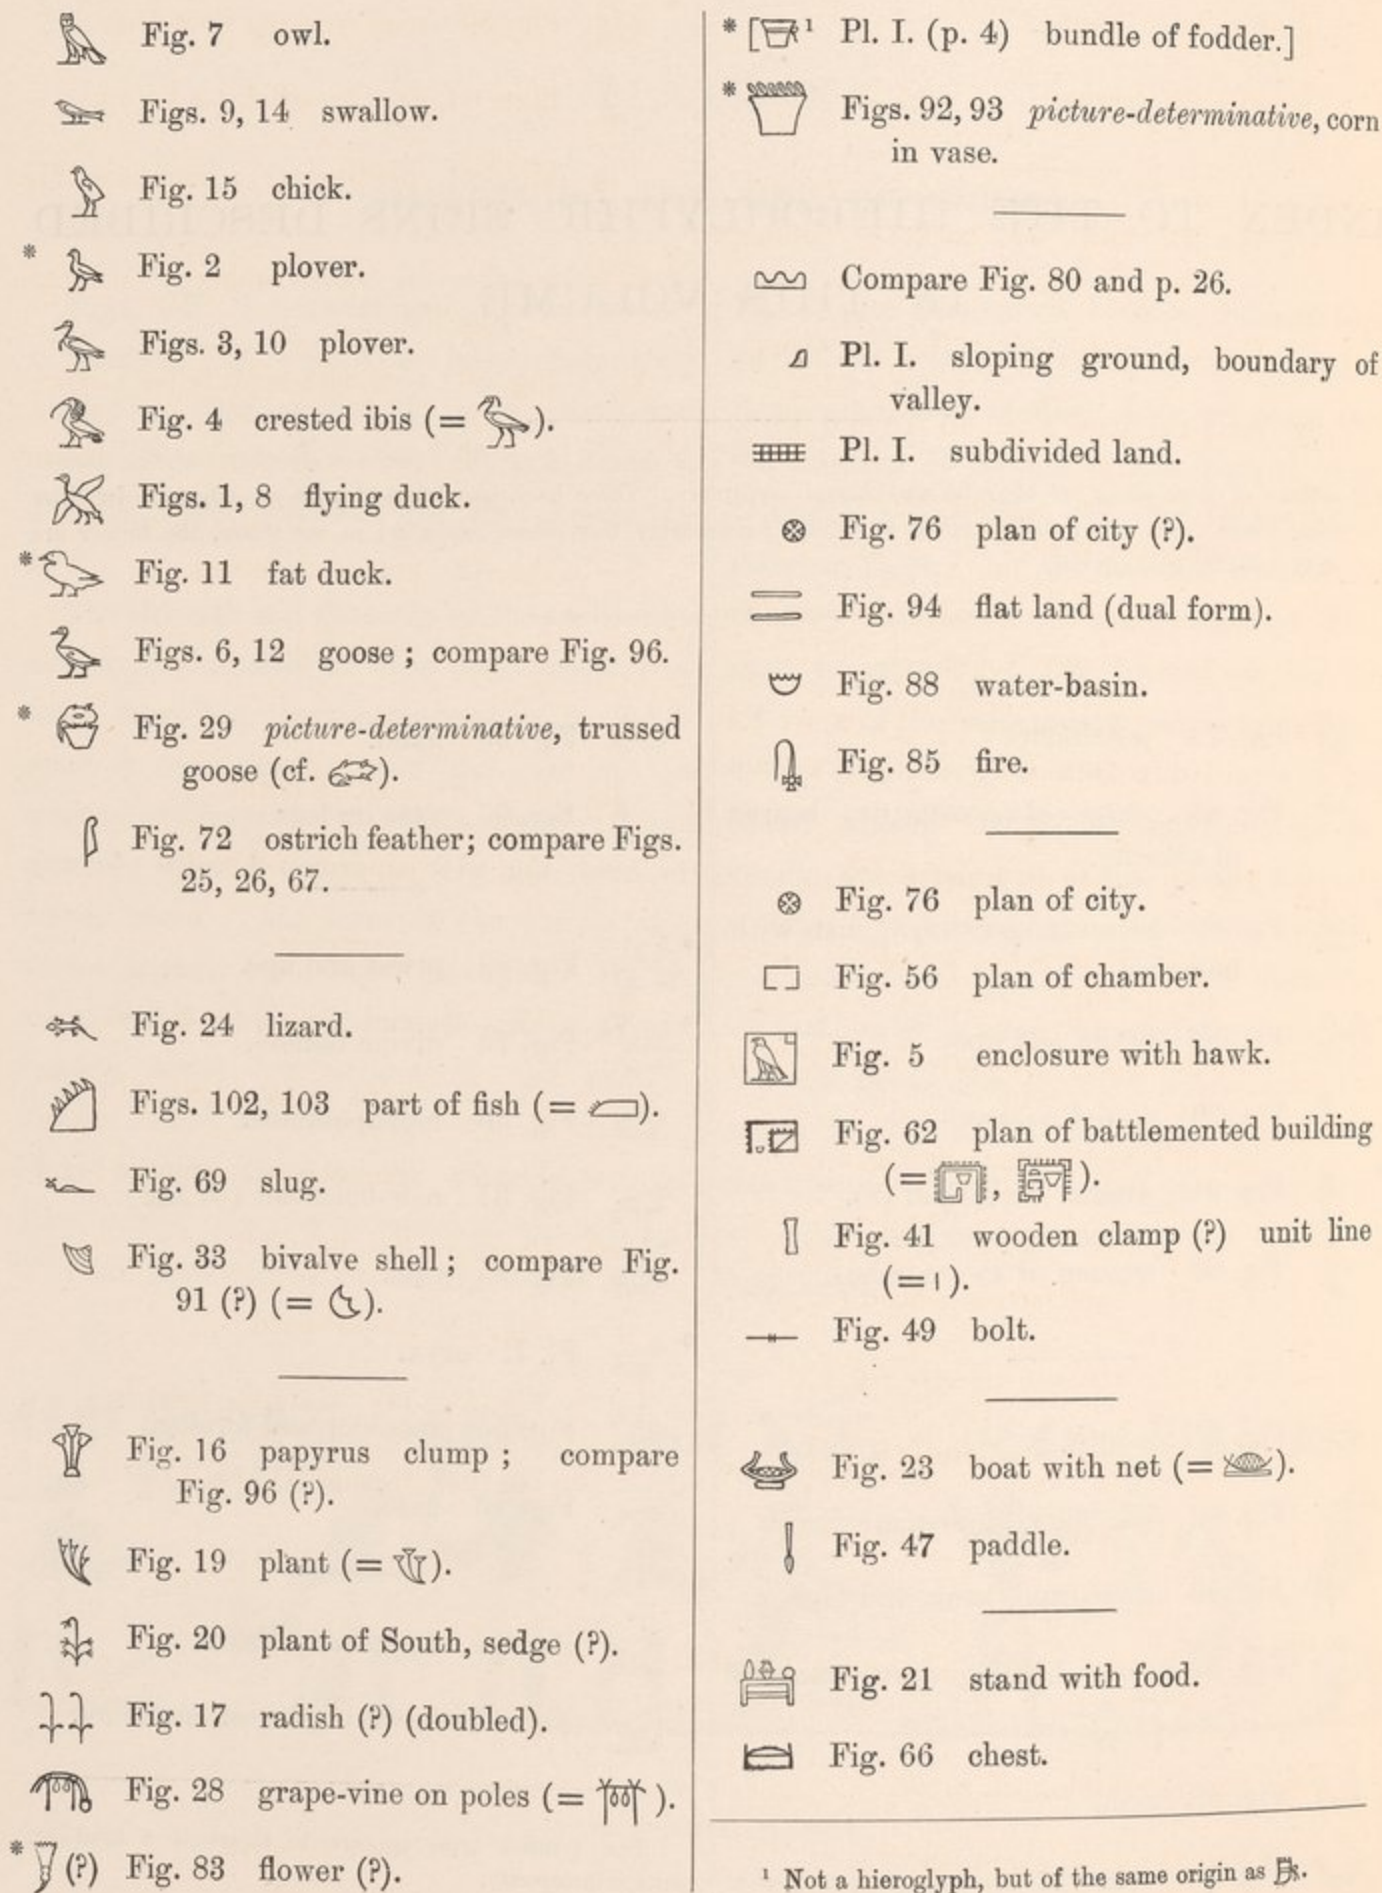 Fig. 7 owl.
Figs. 9, 14 swallow.
Fig. 15 chick.
* Fig. 2 plover.
Figs. 3, 10 plover.
Fig. 4 crested ibis (= ).
Figs. 1, 8 flying duck.
* Fig. 11 fat duck.
Figs. 6, 12 goose ; compare Fig. 96.
* Fig. 29 picture-determinative, trussed
goose (cf. ).
Fig. 72 ostrich feather; compare Figs.
25, 26, 67.
Fig. 24 lizard.
Figs. 102, 103 part of fish (= ).
Fig. 69 slug.
Fig. 33 bivalve shell ; compare Fig.
91 (?) (= ).
Fig. 16 papyrus clump ; compare
Fig. 96 (?).
Fig. 19 plant (= ).
Fig. 20 plant of South, sedge (?).
Fig. 17 radish (?) (doubled).
Fig. 28 grape-vine on poles (= ).
* (?) Fig. 83 flower (?).
* [ ¹ Pl. I. (p. 4) bundle of fodder.]
* Figs. 92, 93 picture-determinative, corn
in vase.
Compare Fig. 80 and p. 26.
Pl. I. sloping ground, boundary of
valley.
Pl. I. subdivided land.
Fig. 76 plan of city (?).
Fig. 94 flat land (dual form).
Fig. 88 water-basin.
Fig. 85 fire.
Fig. 76 plan of city.
Fig. 56 plan of chamber.
Fig. 5 enclosure with hawk.
Fig. 62 plan of battlemented building
(= , ).
Fig. 41 wooden clamp (?) unit line
(= ı ).
Fig. 49 bolt.
Fig. 23 boat with net (= ).
Fig. 47 paddle.
Fig. 21 stand with food.
Fig. 66 chest.
¹ Not a hieroglyph, but of the same origin as .